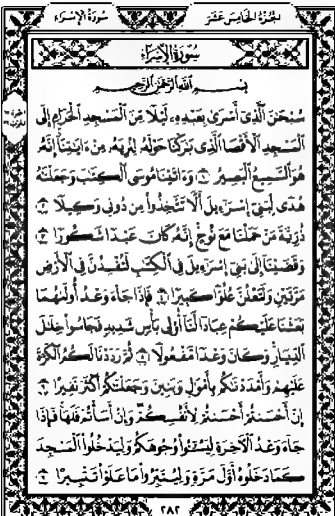 سُورَةُ الإِسْرَاءِ
الجُزْءُ الخَامِسَ عَشَرَ
سُورَةُ الإِسْرَاءِ
بِسْمِ اللَّهِ الرَّحْمَٰنِ الرَّحِيمِ
سُبْحَٰنَ ٱلَّذِىٓ أَسْرَىٰ بِعَبْدِهِۦ لَيْلًا مِّنَ ٱلْمَسْجِدِ ٱلْحَرَامِ إِلَى
ٱلْمَسْجِدِ ٱلْأَقْصَا ٱلَّذِى بَٰرَكْنَا حَوْلَهُۥ لِنُرِيَهُۥ مِنْ ءَايَٰتِنَآ إِنَّهُۥ
هُوَ ٱلسَّمِيعُ ٱلْبَصِيرُ ١ وَءَاتَيْنَا مُوسَى ٱلْكِتَٰبَ وَجَعَلْنَٰهُ
هُدًى لِّبَنِىٓ إِسْرَٰٓءِيلَ أَلَّا تَتَّخِذُوا۟ مِن دُونِى وَكِيلًا ٢
ذُرِّيَّةَ مَنْ حَمَلْنَا مَعَ نُوحٍ إِنَّهُۥ كَانَ عَبْدًا شَكُورًا ٣
وَقَضَيْنَآ إِلَىٰ بَنِىٓ إِسْرَٰٓءِيلَ فِى ٱلْكِتَٰبِ لَتُفْسِدُنَّ فِى ٱلْأَرْضِ
مَرَّتَيْنِ وَلَتَعْلُنَّ عُلُوًّا كَبِيرًا ٤ فَإِذَا جَآءَ وَعْدُ أُولَىٰهُمَا
بَعَثْنَا عَلَيْكُمْ عِبَادًا لَّنَآ أُو۟لِى بَأْسٍ شَدِيدٍ فَجَاسُوا۟ خِلَٰلَ
ٱلدِّيَارِ وَكَانَ وَعْدًا مَّفْعُولًا ٥ ثُمَّ رَدَدْنَا لَكُمُ ٱلْكَرَّةَ
عَلَيْهِمْ وَأَمْدَدْنَٰكُم بِأَمْوَٰلٍ وَبَنِينَ وَجَعَلْنَٰكُمْ أَكْثَرَ نَفِيرًا ٦
إِنْ أَحْسَنتُمْ أَحْسَنتُمْ لِأَنفُسِكُمْ وَإِنْ أَسَأْتُمْ فَلَهَا فَإِذَا
جَآءَ وَعْدُ ٱلْءَاخِرَةِ لِيَسُۥٓـُٔوا۟ وُجُوهَكُمْ وَلِيَدْخُلُوا۟ ٱلْمَسْجِدَ
كَمَا دَخَلُوهُ أَوَّلَ مَرَّةٍ وَلِيُتَبِّرُوا۟ مَا عَلَوْا۟ تَتْبِيرًا ٧
٢٨٢